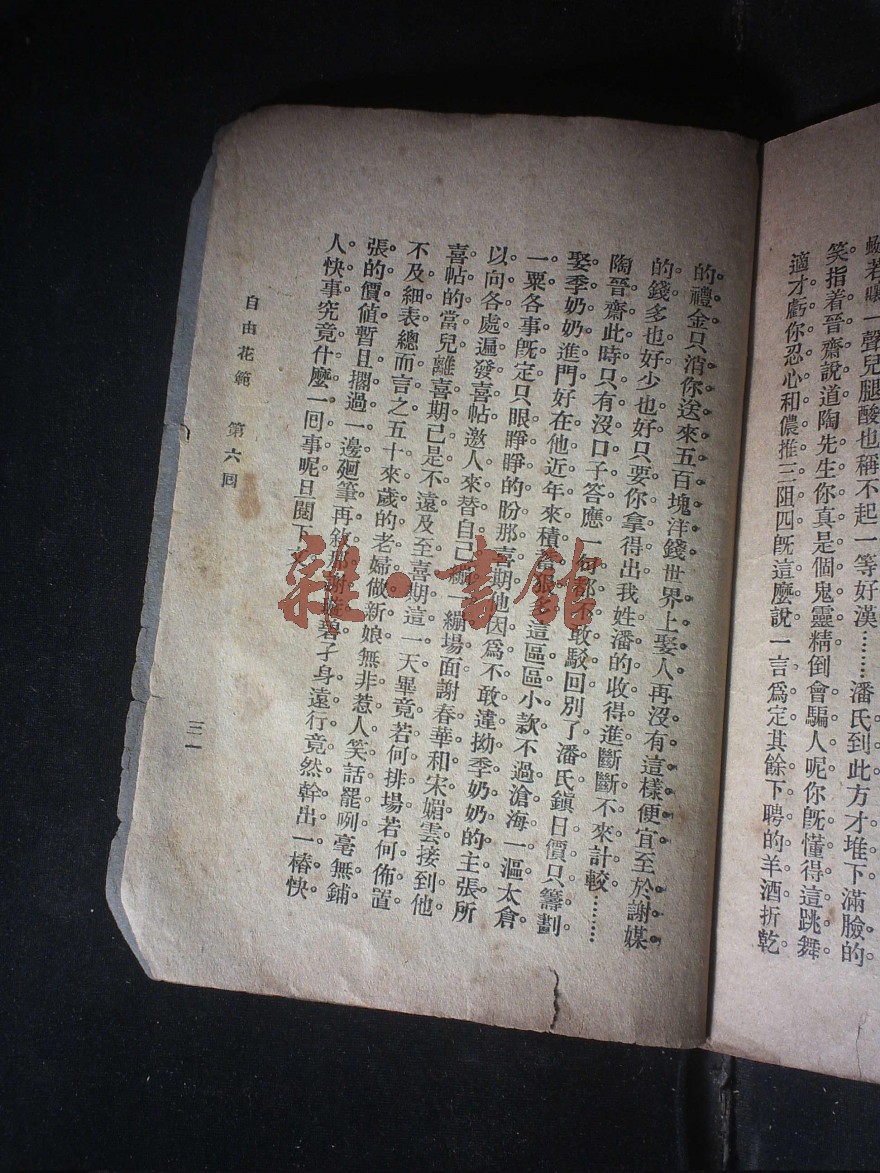 蜒若嚷一聲兒腿酸也稱不起一等好漢………潘氏到此方才堆下滿臉的
笑指着晉齋說道陶先生你真是個鬼靈精倒會騙人呢你旣懂得這跳舞。
適才虧你忍心和儂推三阻四旣這麽說一言爲定其餘下聘的羊酒折乾
的。禮。金。只。消。你。送。來。五。百。塊。洋。錢。世。界。上。娶。人。再。沒。有。這。樣。便。宜。至。於。謝。媒。
的。錢。多。也。好。少。也。好。只。要。你。拿。得。出。我。姓。潘。的。收。得。進。斷。斷。不。來。計。較………
陶晉齋此時只有沒口子答應一句都不敢駁回別了潘氏鎮日價只籌劃
娶季奶奶進門好在他近年來積這區區小款不過滄海一漚太倉
一粟各事旣定只眼睜睜的盼那喜期他因爲不敢違拗季奶奶的主張所
以向各處遍發喜帖邀人來替自己繃一繃場面謝春華和宋媚雲接到他
喜帖的當兒離喜期己是不遠及至喜期這一天畢竟若何排場若何佈置
不及細表總而言之五十來歲的老婦做新娘無非惹人笑話罷咧毫無鋪
張的價値暫且擱過一邊廻筆再敘那謝碧孑身遠行竟然幹出一樁快
人快事究竟什麽一囘事呢且閱下
自由花範 第六囘
三一
雜·書館